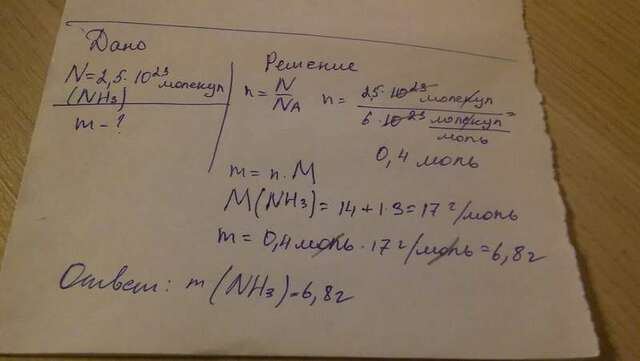 Дано
N=2,5·10²³ молекул
(NH₃)
m-?
Решение
n = N/NA n = 2,5·10²³ молекул / 6·10²³ молекул/моль =
0,4 моль
m = n·M
M(NH₃) = 14+1·3=17 г/моль
m = 0,4моль·17 г/моль=6,8г
Ответ: m (NH₃)=6,8г